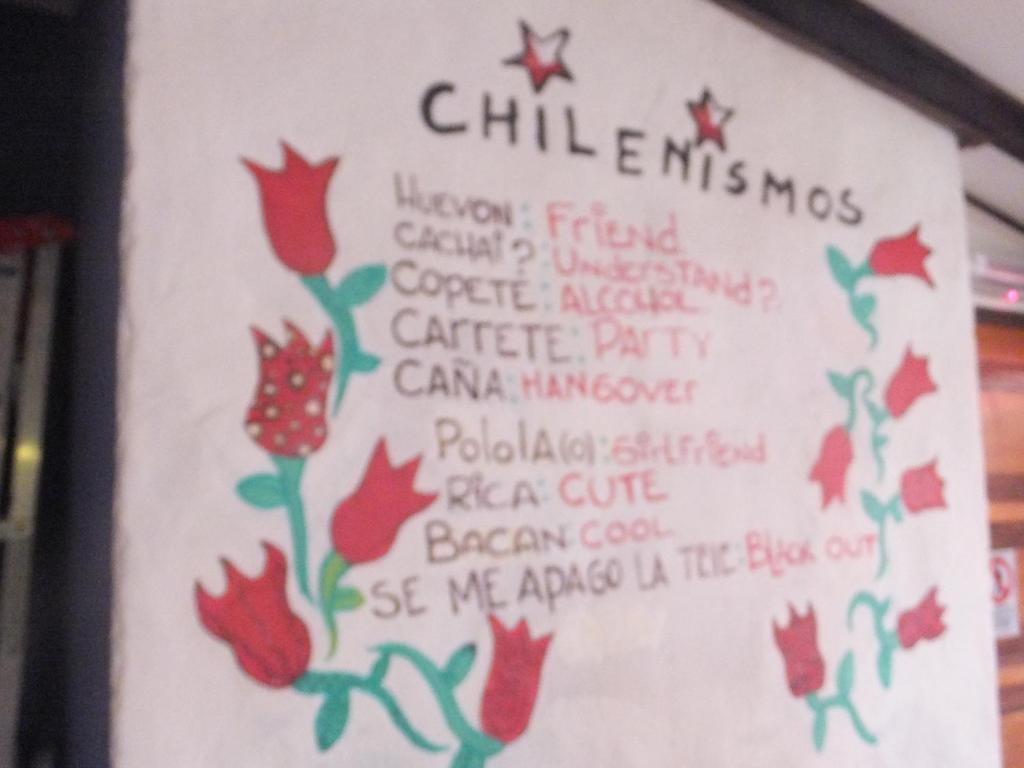 CHILENISMOS
HUEVON: Friend
CACHAI?: UndersTANd?
COPETE: ALCOHOL
CARRETE: PArTY
CAÑA: HANGOVEr
PololA(o): GirLFriend
RICA: CUTE
BACAN: COOL
SE ME APAGO LA TELE: BLACK OUT